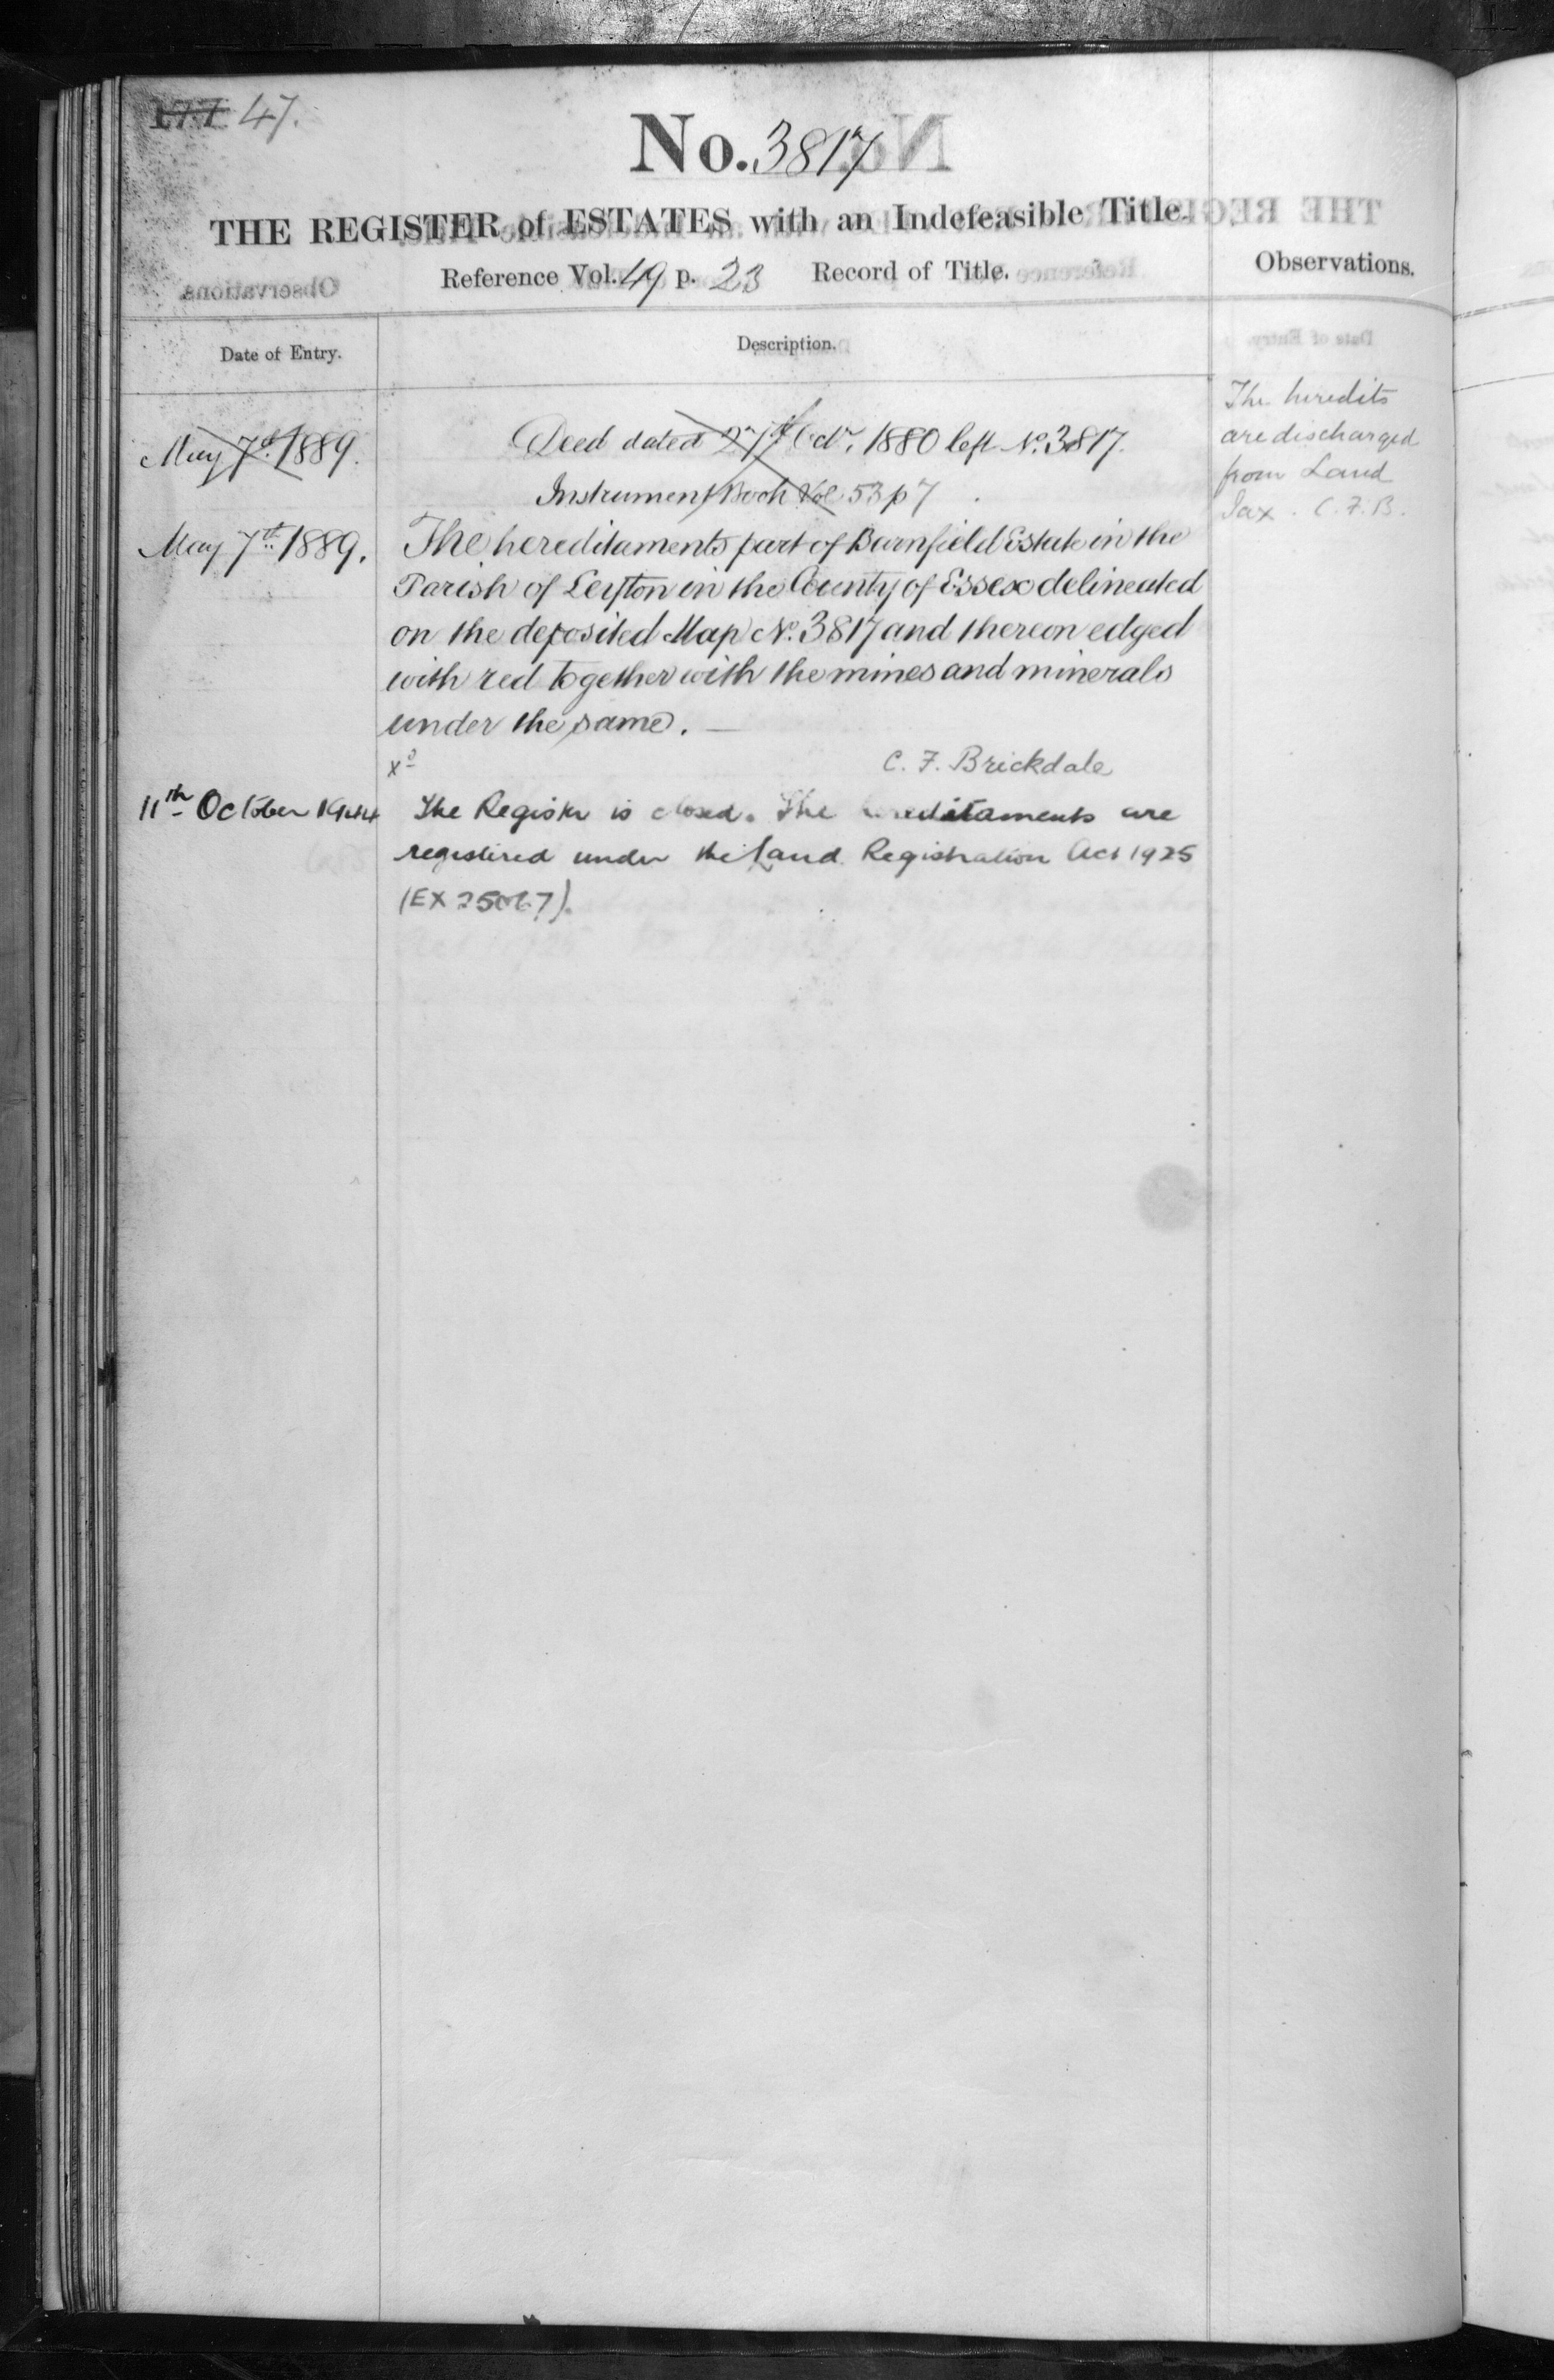 177 47.
No. 3817
THE REGISTER of ESTATES with an Indefeasible Title.
Reference Vol. 49 p. 23 Record of Title.
Observations.
Date of Entry.
Description.
May 7th 1889.
Deed dated 27th Octr. 1880 left No. 3817.
Instrument Book Vol 53 p 7
May 7th 1889.
The hereditaments part of Barnfield Estate in the
Parish of Leyton in the County of Essex delineated
on the deposited Map No. 3817 and thereon edged
with red together with the mines and minerals
under the same. —
C. F. Brickdale
11th October 1944
The Register is closed. The hereditaments are
registered under the Land Registration Act 1925
(EX 25067).
The heredits
are discharged
from Land
Tax. C. F. B.